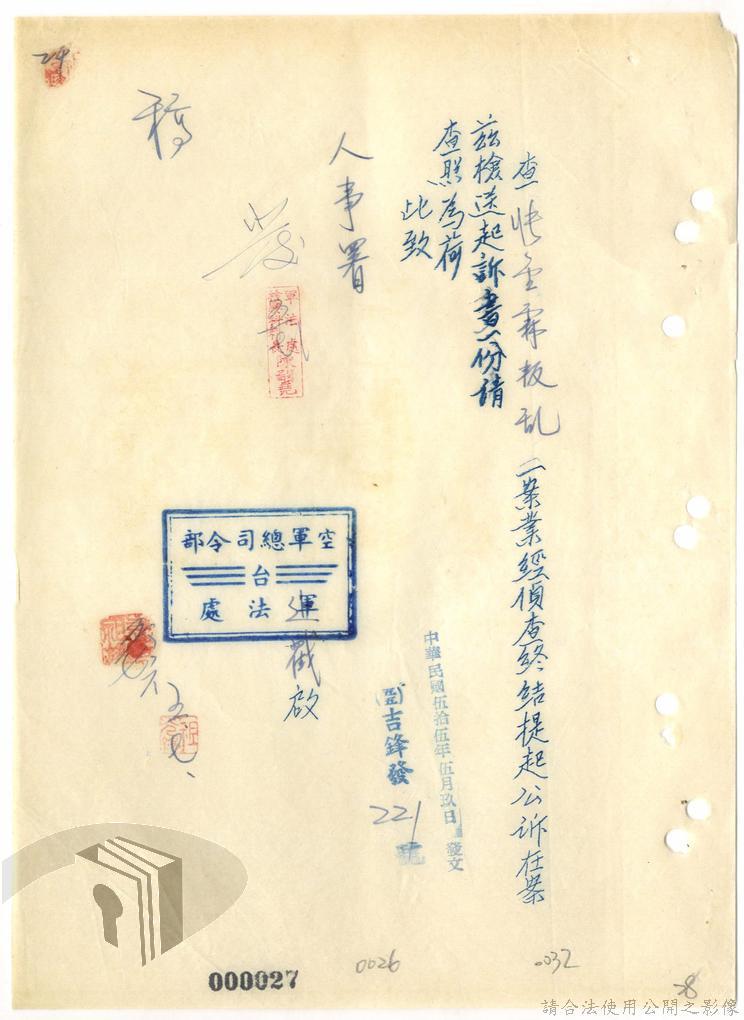 查張金霖叛乱一案業經偵查終結提起公訴在案
茲檢送起訴書一份請
查照為荷
此致
人事署
發
稿
空軍總司令部
台
軍法處
逕戳
啟
中華民國伍拾伍年伍月玖日發文
吉鋒發
221
號
24
000027
0026
0032
28
請合法使用公開之影像